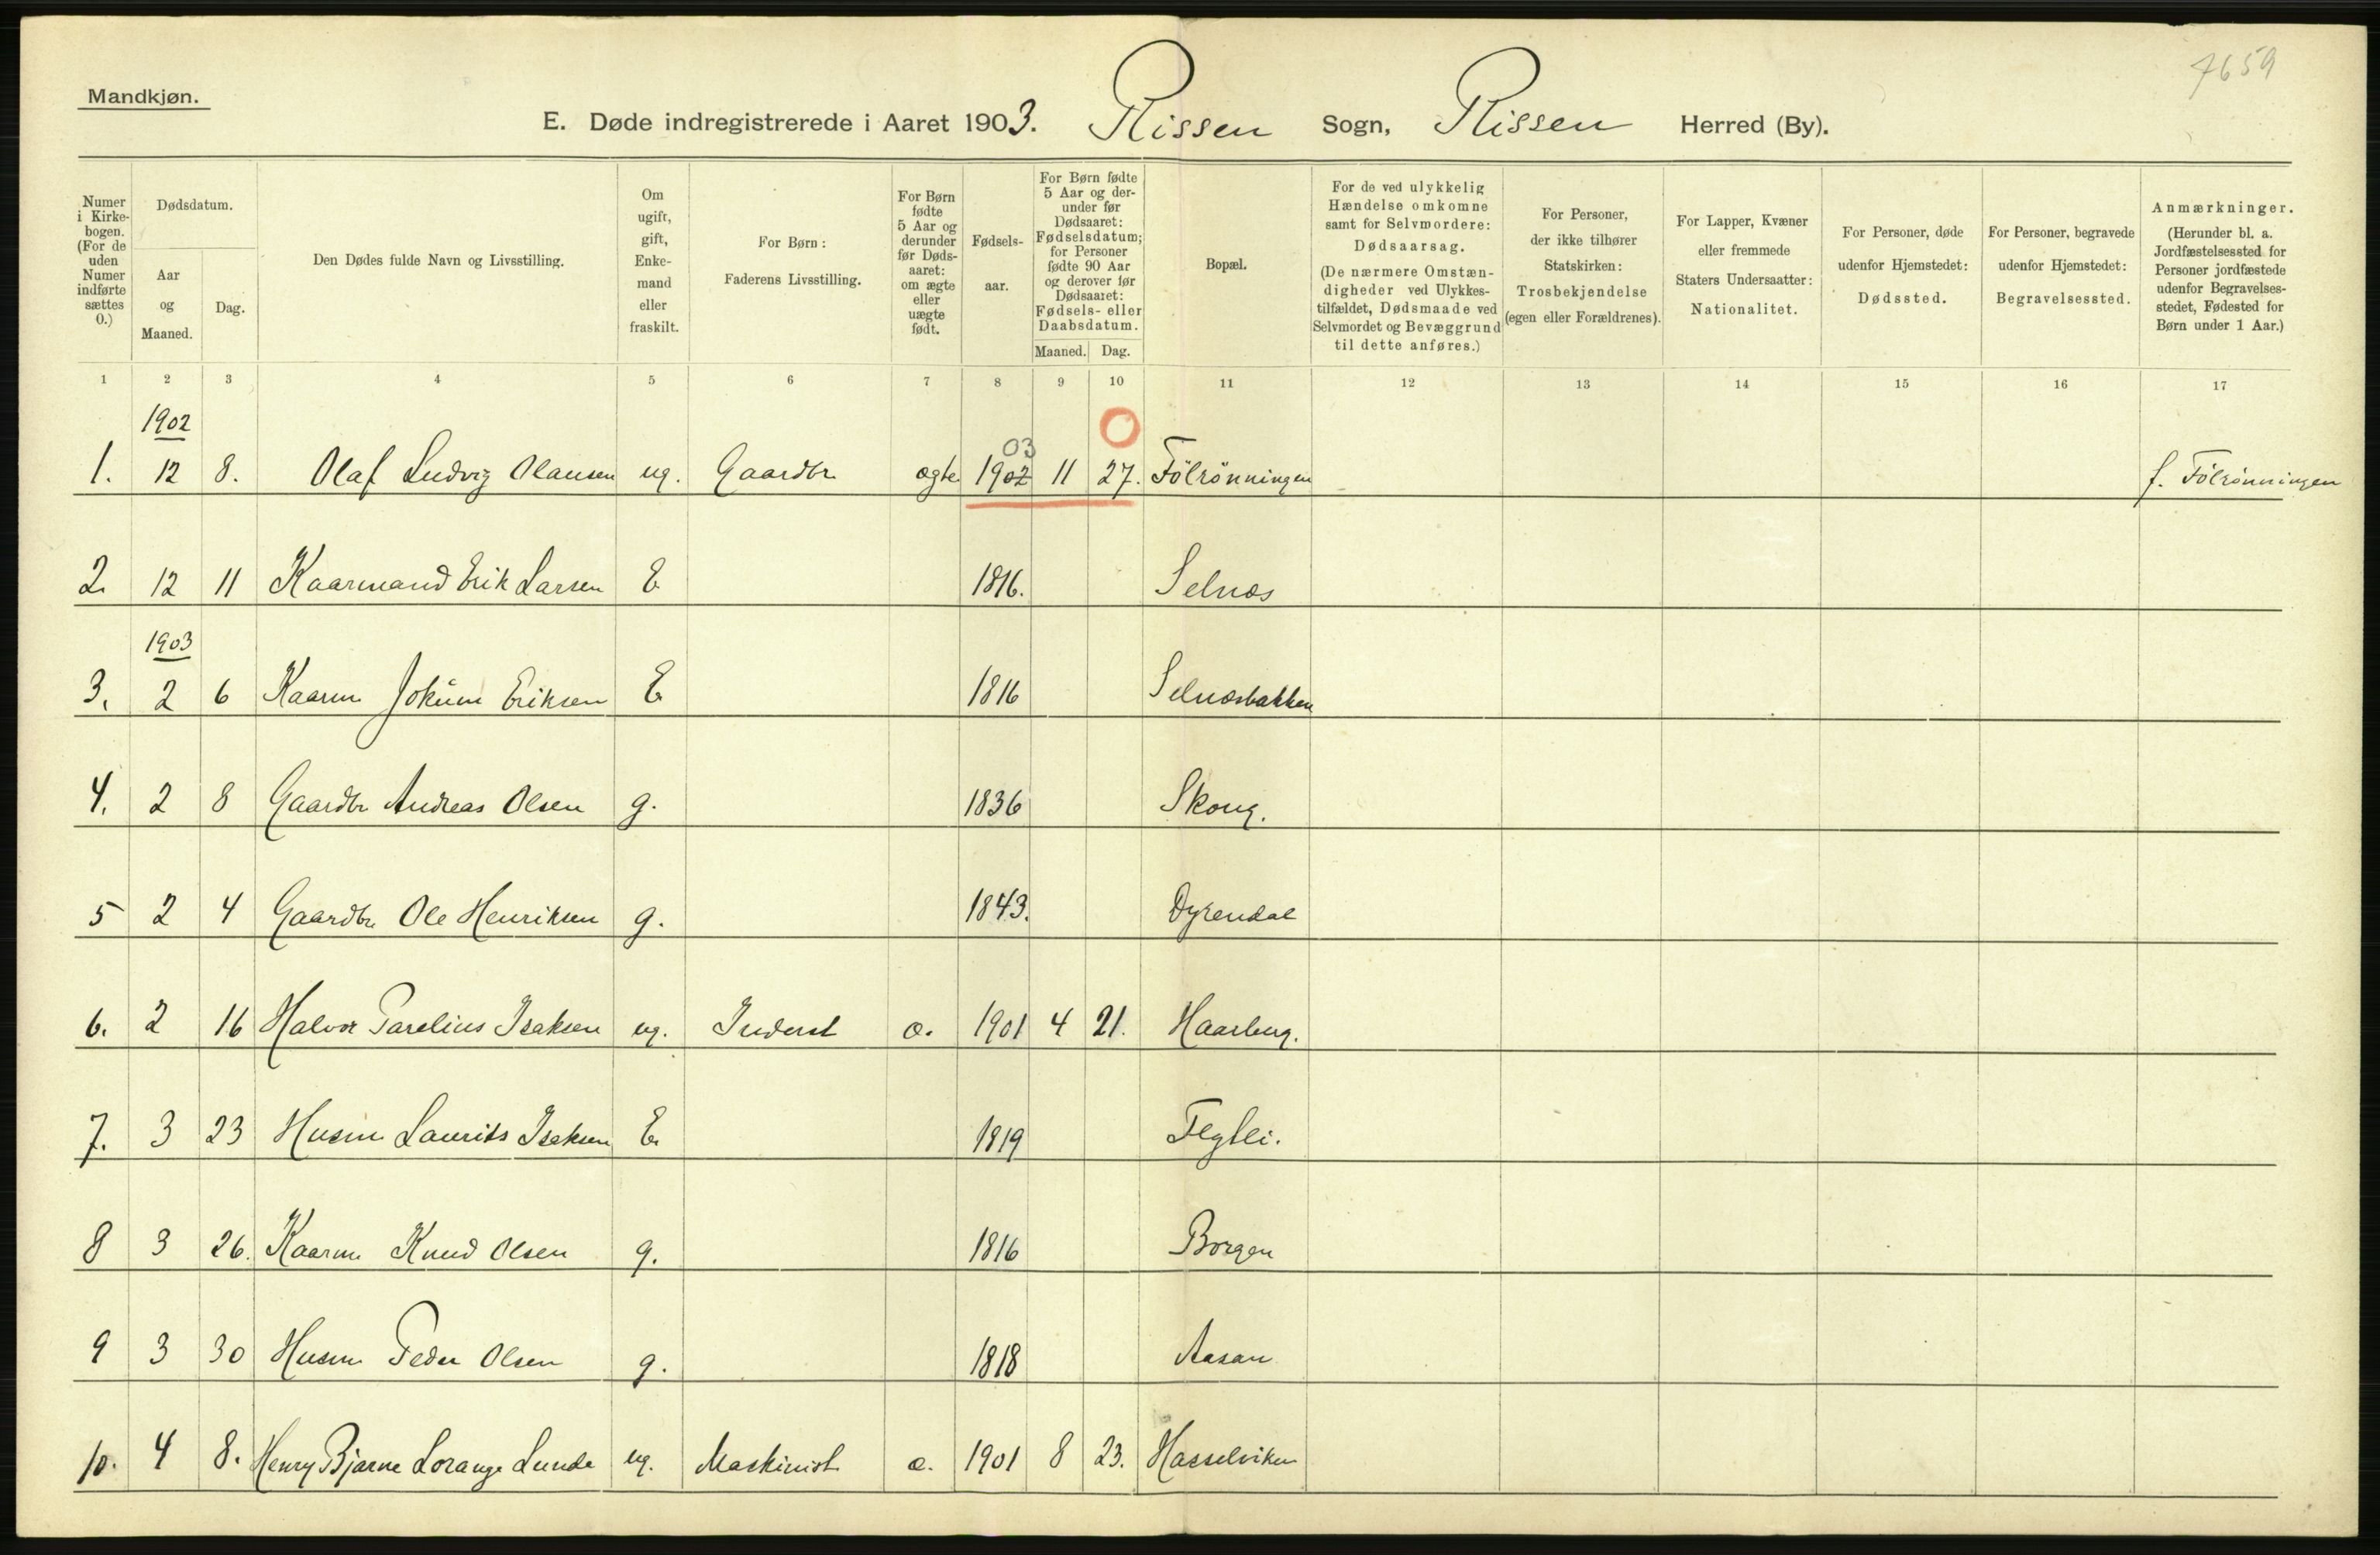 7659
Mandkjøn.
E. Døde indregistrerede i Aaret 1903. Rissen Sogn, Rissen Herred (By).
Numer i Kirkebogen. (For de uden Numer indførte sættes 0.)
Dødsdatum.
Aar og Maaned.
Dag.
Den Dødes fulde Navn og Livsstilling.
Om ugift, gift, Enkemand eller fraskilt.
For Børn: Faderens Livsstilling.
For Børn fødte 5 Aar og derunder før Dødsaaret: om ægte eller uægte født.
Fødselsaar.
For Børn fødte 5 Aar og derunder før Dødsaaret: Fødselsdatum; for Personer fødte 90 Aar og derover før Dødsaaret: Fødsels- eller Daabsdatum.
Maaned. Dag.
Bopæl.
For de ved ulykkelig Hændelse omkomne samt for Selvmordere: Dødsaarsag. (De nærmere Omstændigheder ved Ulykkestilfældet, Dødsmaade ved Selvmordet og Bevæggrund til dette anføres.)
For Personer, der ikke tilhører Statskirken: Trosbekjendelse (egen eller Forældrenes).
For Lapper, Kvæner eller fremmede Staters Undersaatter: Nationalitet.
For Personer, døde udenfor Hjemstedet: Dødssted.
For Personer, begravede udenfor Hjemstedet: Begravelsessted.
Anmærkninger. (Herunder bl. a. Jordfæstelsessted for Personer jordfæstede udenfor Begravelsesstedet, Fødested for Børn under 1 Aar.)
1 2 3 4 5 6 7 8 9 10 11 12 13 14 15 16 17
1902
03
1. 12 8. Olaf Ludvig Olausen ug. Gaardbr ægte 1902 11 27. Fölrönningen f. Fölrönningen
2. 12 11 Kaarmand Erik Larsen E 1816. Selnæs
1903
3. 2 6 Kaarm Jokum Eriksen E 1816 Selnæsbakken
4. 2 8 Gaardbr Andreas Olsen g. 1836 Skoug.
5 2 4 Gaardbr Ole Henriksen g. 1843. Dyrendal
6. 2 16 Halvor Parelius Isaksen ug. Inderst æ. 1901 4 21. Haarberg.
7. 3 23 Husm Laurits Isaksen E. 1819
8 3 26. Kaarm Knud Olsen g. 1816 Borgen
9 3 30 Husm Peder Olsen g. 1818 Aasan
10. 4 8. Henry Bjarne Lorange Lunde ug. Maskinist æ. 1901 8 23. Hasselviken